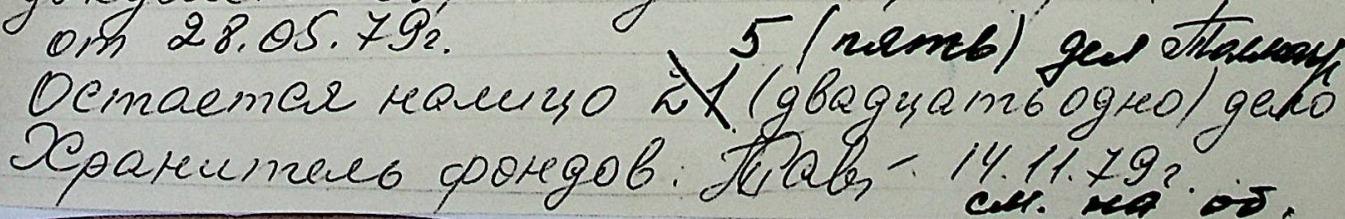 от 28.05.79г. 5 (пять) дел
Остается налицо 21 (двадцать одно) дело
Хранитель фондов. 14.11.79г.
см. на об.